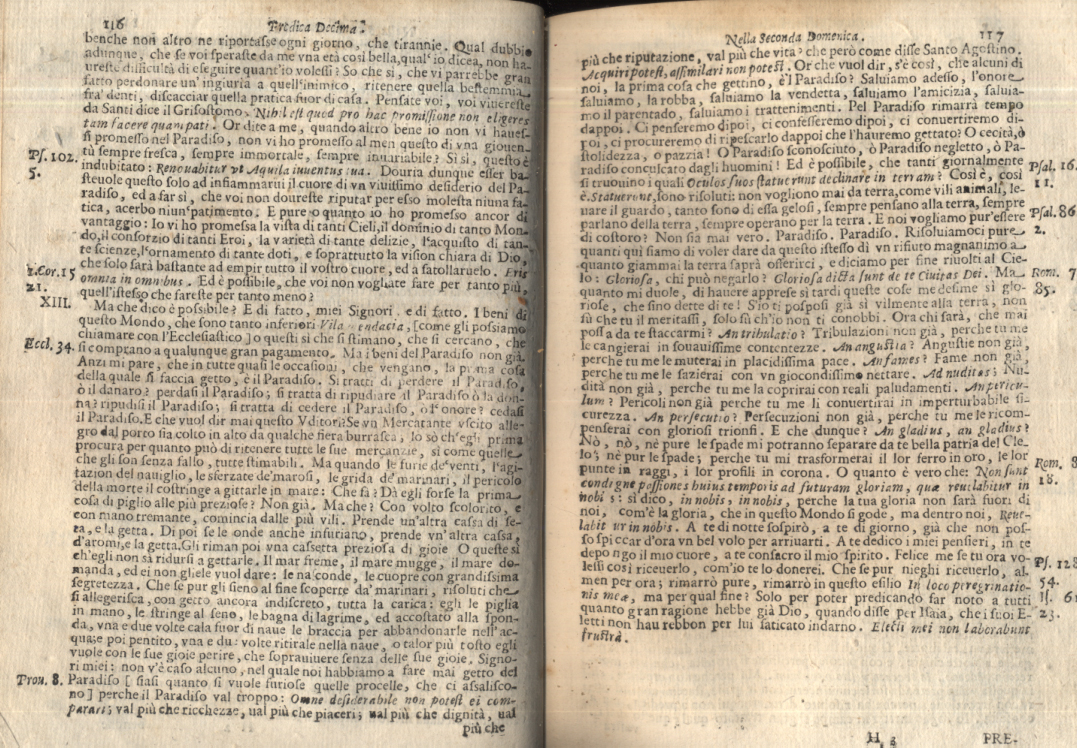 116 Predica Decima.
benche non altro ne riportasse ogni giorno, che tirannie. Qual dubbio
adunque, che se voi speraste da me vna età così bella, qual'io dicea, non ha-
ureste difficultà di eseguire quant'io volessi? So che sì, che vi parrebbe gran
fatto perdonare vn'ingiuria a quell'inimico, ritenere quella bestemmia
fra' denti, discacciar quella pratica fuor di casa. Pensate voi, voi viureste
da Santi dice il Grisostomo. Nihil est quod pro hac promissione non eligeres
tam facere quam pati. Or dite a me, quando altro bene io non vi haues-
si promesso nel Paradiso, non vi ho promesso al men questo di vna giouen-
tù sempre fresca, sempre immortale, sempre inuariabile? Sì sì, questo è
Ps. 102. 5.
indubitato: Renouabitur vt Aquila iuuentus tua. Douria dunque esser ba-
steuole questo solo ad infiammarui il cuore di vn viuissimo desiderio del Pa-
radiso, ed a far sì, che voi non doureste riputar per esso molesta niuna fa-
tica, acerbo niun patimento. E pure o quanto io ho promesso ancor di
vantaggio: Io vi ho promessa la vista di tanti Cieli, il dominio di tanto Mon-
do, il consorzio di tanti Eroi, la varietà di tante delizie, l'acquisto di tan-
te scienze, l'ornamento di tante doti, e soprattutto la vision chiara di Dio,
che solo sarà bastante ad empir tutto il vostro cuore, ed a satollaruelo. Eris
1. Cor. 15 21.
omnia in omnibus. Ed è possibile, che voi non vogliate fare per tanto più,
quell'istesso che fareste per tanto meno?
XIII.
Ma che dico è possibile? E di fatto, miei Signori, e di fatto. I beni di
questo Mondo, che sono tanto inferiori Vila mendacia, [come gli possiamo
chiamare con l'Ecclesiastico] o questi sì che si stimano, che si cercano, che
Eccl. 34.
si comprano a qualunque gran pagamento. Ma i beni del Paradiso non già.
Anzi mi pare, che in tutte quasi le occasioni, che vengano, la prima cosa
della quale si faccia getto, è il Paradiso. Si tratti di perdere il Paradiso,
ò il danaro? perdasi il Paradiso; si tratta di ripudiare il Paradiso ò la don-
na? ripudisi il Paradiso; si tratta di cedere il Paradiso, ò l'onore? cedasi
il Paradiso. E che vuol dir mai questo Vditori? Se vn Mercatante vscito alle-
gro dal porto sia colto in alto da qualche fiera burrasca, lo sò ch'egli prima
procura per quanto può di ritenere tutte le sue mercanzie, sì come quelle
che gli son senza fallo, tutte stimabili. Ma quando le furie de'venti, l'agi-
tazion del nauiglio, le sferzate de'marosi, le grida de'marinari, il pericolo
della morte il costringe a gittarle in mare: Che fà? Dà egli forse la prima
cosa di piglio alle più preziose? Non già. Ma che? Con volto scolorito, e
con mano tremante, comincia dalle più vili. Prende vn'altra cassa di se-
ta, e la getta. Di poi se le onde anche infuriano, prende vn'altra cassa
d'aromi, e la getta. Gli riman poi vna cassetta preziosa di gioie O queste sì
ch'egli non sà ridursi a gettarle. Il mar freme, il mare mugge, il mare do-
manda, ed ei non gliele vuol dare: le nasconde, le cuopre con grandissima
segretezza. Che se pur gli sieno al fine scoperte da' marinari, risoluti che
si allegerisca, con getto ancora indiscreto, tutta la carica: egli le piglia
in mano, le stringe al seno, le bagna di lagrime, ed accostato alla spon-
da, vna e due volte cala fuor di naue le braccia per abbandonarle nell'ac-
qua; e poi pentito, vna e due volte ritirale nella naue, o talor più tosto egli
vuole con le sue gioie perire, che soprauiuere senza delle sue gioie. Signo-
ri miei: non v'è caso alcuno, nel quale noi habbiamo a fare mai getto del
Prou. 8.
Paradiso [siasi quanto si vuole furiose quelle procelle, che ci assalisco-
no] perche il Paradiso val troppo: Omne desiderabile non potest ei com-
parari; val più che ricchezze, ual più che piaceri; ual più che dignità, ual
più che
Nella Seconda Domenica. 117
più che riputazione, val più che vita? che però come disse Santo Agostino.
Acquiri potest, assimilari non potest. Or che vuol dir, s'è così, che alcuni di
noi, la prima cosa che gettino, è'l Paradiso? Saluiamo adesso, l'onore
saluiamo, la robba, saluiamo la vendetta, saluiamo l'amicizia, saluia-
mo il parentado, saluiamo i trattenimenti. Pel Paradiso rimarrà tempo
dappoi. Ci penseremo dipoi, ci confesseremo dipoi, ci conuertiremo di-
poi, ci procureremo di ripescarlo dappoi che l'hauremo gettato? O cecità, ò
stolidezza, o pazzia! O Paradiso sconosciuto, ò Paradiso negletto, ò Pa-
radiso conculcato dagli huomini! Ed è possibile, che tanti giornalmente
Psal. 16. 11.
si truouino i quali Oculos suos statuerunt declinare in terram? Così è, così
è. Statuerunt, sono risoluti: non vogliono mai da terra, come vili animali, le-
uare il guardo, tanto sono di essa gelosi, sempre pensano alla terra, sempre
parlano della terra, sempre operano per la terra. E noi vogliamo pur'essere
Psal. 86. 2.
di costoro? Non sia mai vero. Paradiso. Paradiso. Risoluiamoci pure
quanti qui siamo di voler dare da questo istesso dì vn rifiuto magnanimo a
quanto giammai la terra saprà offerirci, e diciamo per fine riuolti al Cie-
lo: Gloriosa, chi può negarlo? Gloriosa dicta sunt de te Ciuitas Dei. Ma
Rom. 7 85.
quanto mi duole, di hauere apprese sì tardi queste cose medesime sì glo-
riose, che sino dette di te! S'io ti posposi già sì vilmente alla terra, non
sù che tu il meritassi, solo fù ch'io non ti conobbi. Ora chi sarà, che mai
possa da te staccarmi? An tribulatio? Tribulazioni non già, perche tu me
le cangierai in souauissime contentezze. An angustia? Angustie non già,
perche tu me le muterai in placidissima pace. An fames? Fame non già,
perche tu me la sazierai con vn giocondissimo nettare. An nuditas? Nu-
dità non già, perche tu me la coprirai con reali paludamenti. An pericu-
lum? Pericoli non già perche tu me li conuertirai in imperturbabile si-
curezza. An persecutio? Persecuzioni non già, perche tu me le ricom-
penserai con gloriosi trionfi. E che dunque? An gladius, an gladius?
Nò, nò, nè pure le spade mi potranno separare da te bella patria del Cie-
lo; nè pur le spade; perche tu mi trasformerai il lor ferro in oro, le lor
Rom. 8 18.
punte in raggi, i lor profili in corona. O quanto è vero che: Non sunt
condignæ passiones huius temporis ad futuram gloriam, quæ reuelabitur in
nobis: sì dico, in nobis: in nobis, perche la tua gloria non sarà fuori di
noi, com'è la gloria, che in questo Mondo si gode, ma dentro noi, Reue-
labitur in nobis. A te di notte sospirò, a te di giorno, già che non pos-
so spiccar d'ora vn bel volo per arriuarti. A te dedico i miei pensieri, in te
depongo il mio cuore, a te consacro il mio spirito. Felice me se tu ora vo-
Ps. 128 54.
lessi così riceuerlo, com'io te lo donerei. Che se pur nieghi riceuerlo, al-
men per ora; rimarrò pure, rimarrò in questo esilio In loco peregrinatio-
Is. 61 23.
nis meæ, ma per qual fine? Solo per poter predicando far noto a tutti
quanto gran ragione hebbe già Dio, quando disse per Isaia, che i suoi E-
letti non haurebbon per lui faticato indarno. Electi mei non laborabunt
frustrà.
H 3 PRE-